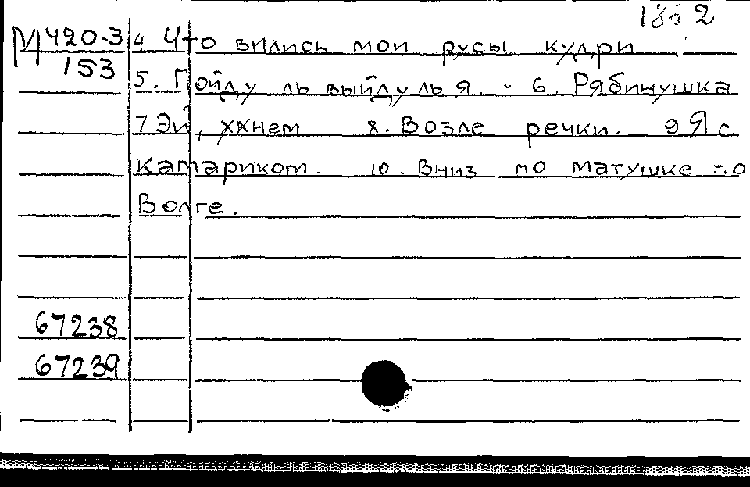 М420-3 4 Что вились мои русы кудри
153
5. Пойду ль выйду ль я. - 6. Рябинушка
7 Эй, ухнем 8. Возле речки. 9 Я с
Камариком. 10. Вниз по матушке по
Волге.
67238
67239